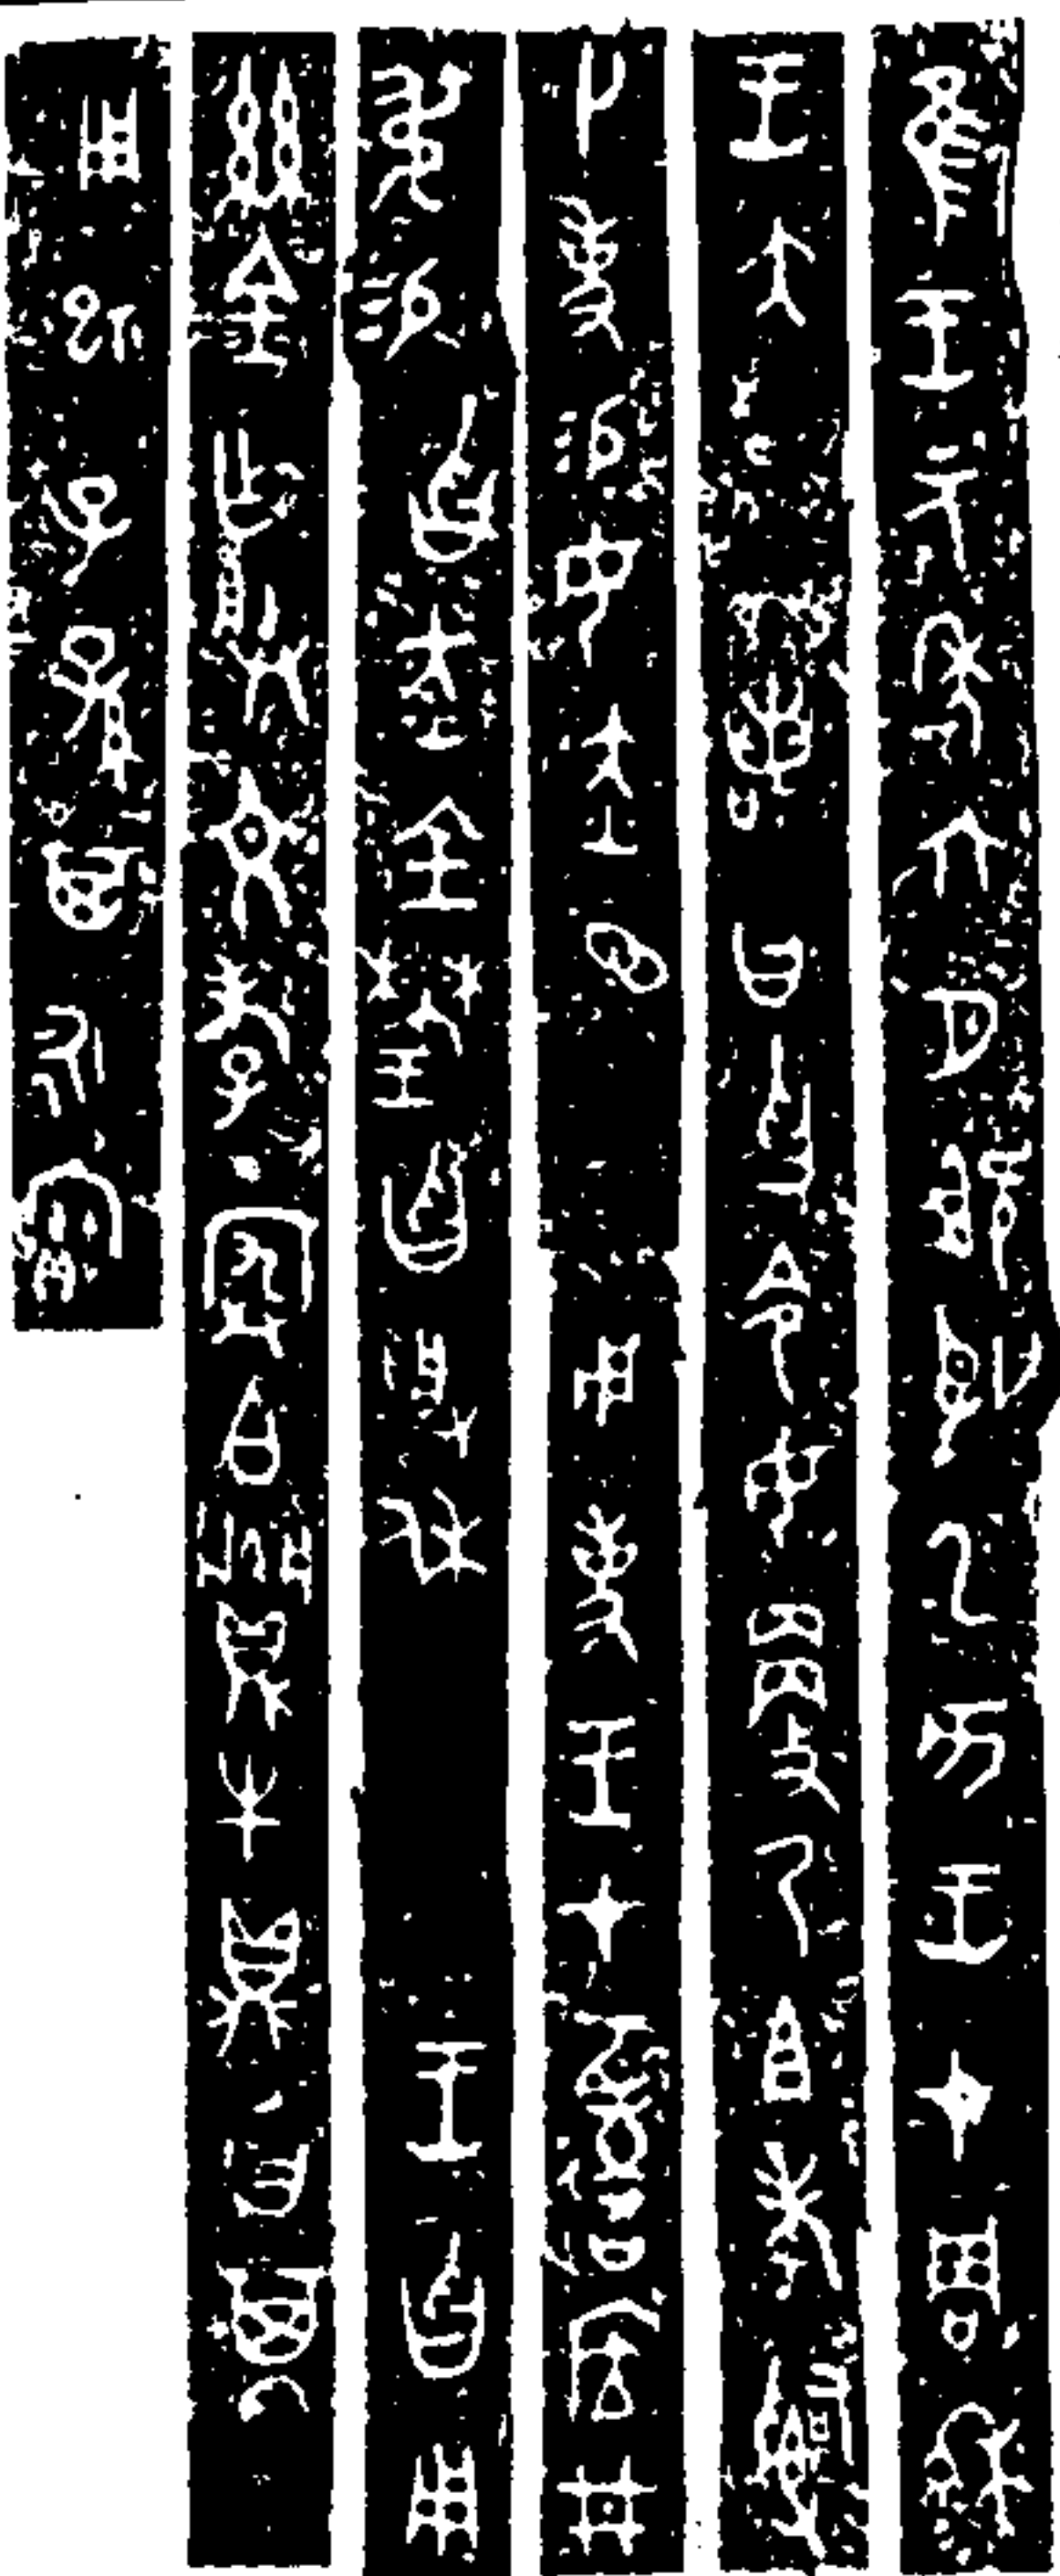 隹王元年六月既望乙亥王才周穆
王大若曰曶令女更乃且考𤔲
卜事易女赤⊙用事王才𨓚㡯井
叔易曶赤金曶受休王曶用
茲金乍朕文考弃白䵼牛鼎曶其
用祀子子孫孫其永寶